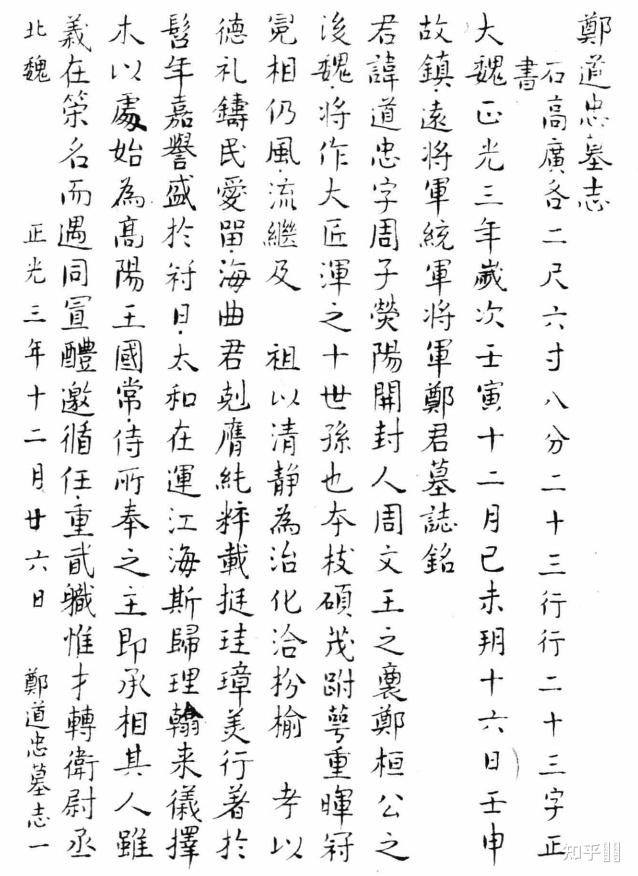 鄭道忠墓志
石高廣各二尺六寸八分二十三行行二十三字正
書
大魏正光三年歲次壬寅十二月己未玥十六日壬申
故鎮遠將軍統軍將軍鄭君墓誌銘
君諱道忠字周子熒陽開封人周文王之裔鄭桓公之
後魏將作大匠渾之十世孫也夲枝碩茂跗萼重暉冠
冕相仍風流繼及 祖以清静為治化洽枌榆 考以
德礼鑄民愛留海曲君剋膺純粹載挺珪璋美行著於
髫年嘉譽盛於冠日太和在運江海斯歸理翰来儀擇
木以處始為高陽王國常侍所奉之主即承相其人雖
義在策名而遇同置醴邀循任重貳職惟才轉衛尉丞
北魏 正光三年十二月廿六日 鄭道忠墓志一
知乎